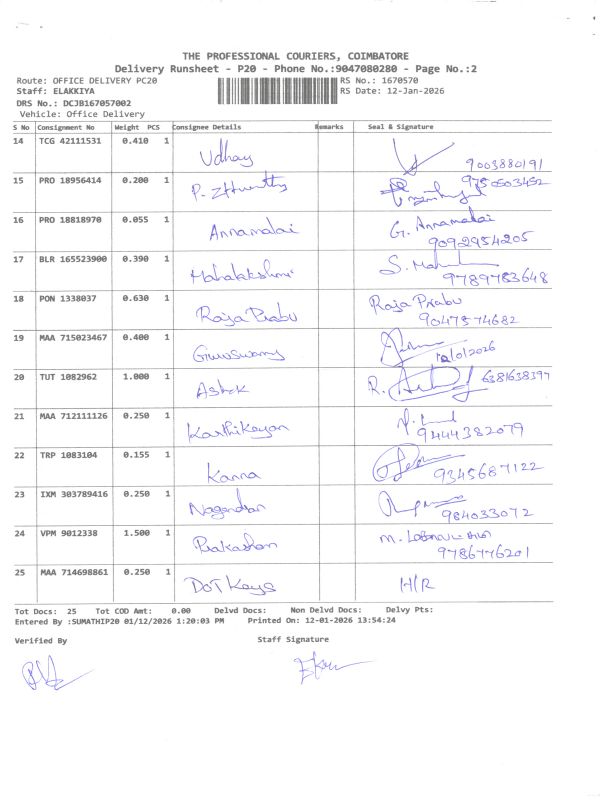 THE PROFESSIONAL COURIERS, COIMBATORE
Delivery Runsheet - P20 - Phone No.:9047080280 - Page No.:2
Route: OFFICE DELIVERY PC20 RS No.: 1670570
Staff: ELAKKIYA RS Date: 12-Jan-2026
DRS No.: DCJB167057002
Vehicle: Office Delivery
S No Consignment No Weight PCS Consignee Details Remarks Seal & Signature
14 TCG 42111531 0.410 1 Udhay 9003880191
15 PRO 18956414 0.200 1 P.
16 PRO 18818970 0.055 1 Annamalai G. Annamalai 9092954205
17 BLR 165523900 0.390 1 Mahalakshmi 9789783648
18 PON 1338037 0.630 1 Raja Prabu Raja Prabu 9047574682
19 MAA 715023467 0.400 1 Guruswamy
20 TUT 1082962 1.000 1 Ashok R. 6381638397
21 MAA 712111126 0.250 1 Karthikeyan 9444382079
22 TRP 1083104 0.155 1 Kanna 9345687122
23 IXM 303789416 0.250 1 Nagendran 984033072
24 VPM 9012338 1.500 1 Prakasham 9786776201
25 MAA 714698861 0.250 1 DOT Keys H/R
Tot Docs: 25 Tot COD Amt: 0.00 Delvd Docs: Non Delvd Docs: Delvy Pts:
Entered By :SUMATHIP20 01/12/2026 1:20:03 PM Printed On: 12-01-2026 13:54:24
Verified By Staff Signature